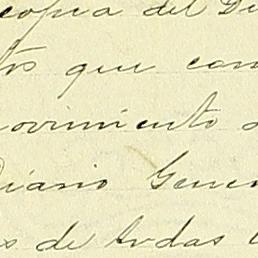 copia del Di
tos que con
ovimiento
Diario Gene
s de todas